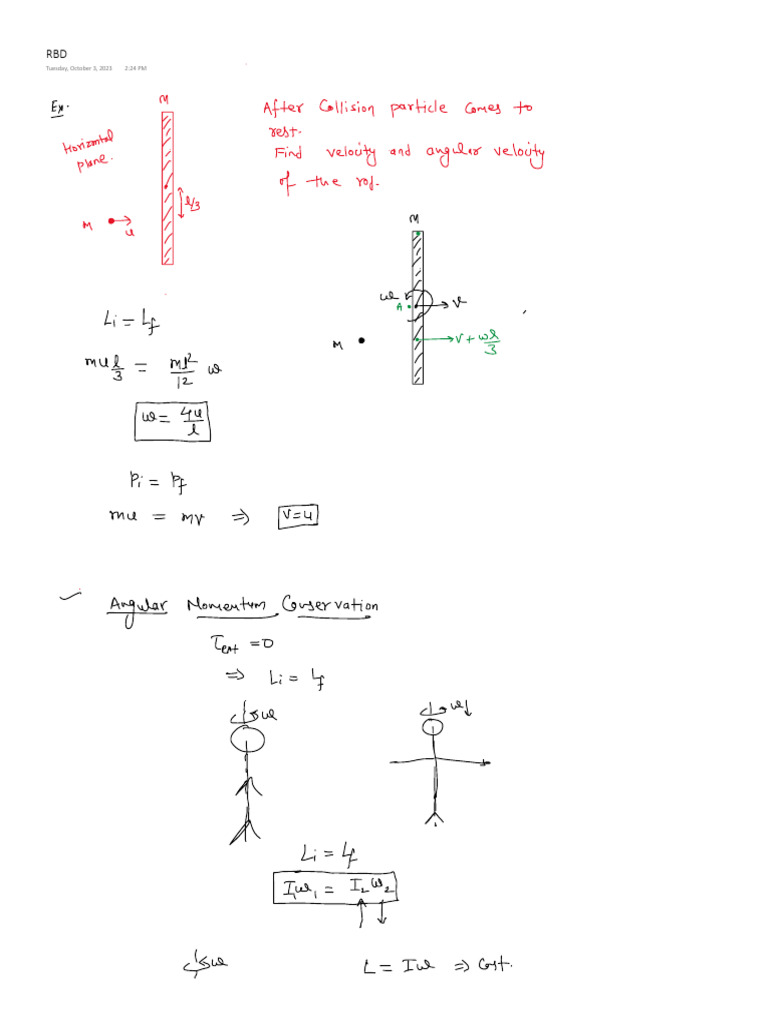 RBD
Tuesday, October 3, 2023 2:24 PM
Ex.
M
Horizontal
plane.
l/3
M
u
After Collision particle comes to
rest.
Find velocity and angular velocity
of the rod.
M
ω
A
v
M
v + ωl/3
Li = Lf
mu l/3 = Ml²/12 ω
ω = 4u/l
Pi = Pf
mu = mv ⇒ v=u
✓ Angular Momentum Conservation
τext = 0
⇒ Li = Lf
ω
ω↓
Li = Lf
I₁ω₁ = I₂ω₂
↑ ↓
ω
L = Iω ⇒ Cost.